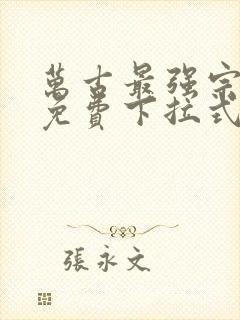 萬古最强宗
免費下拉式
張永文